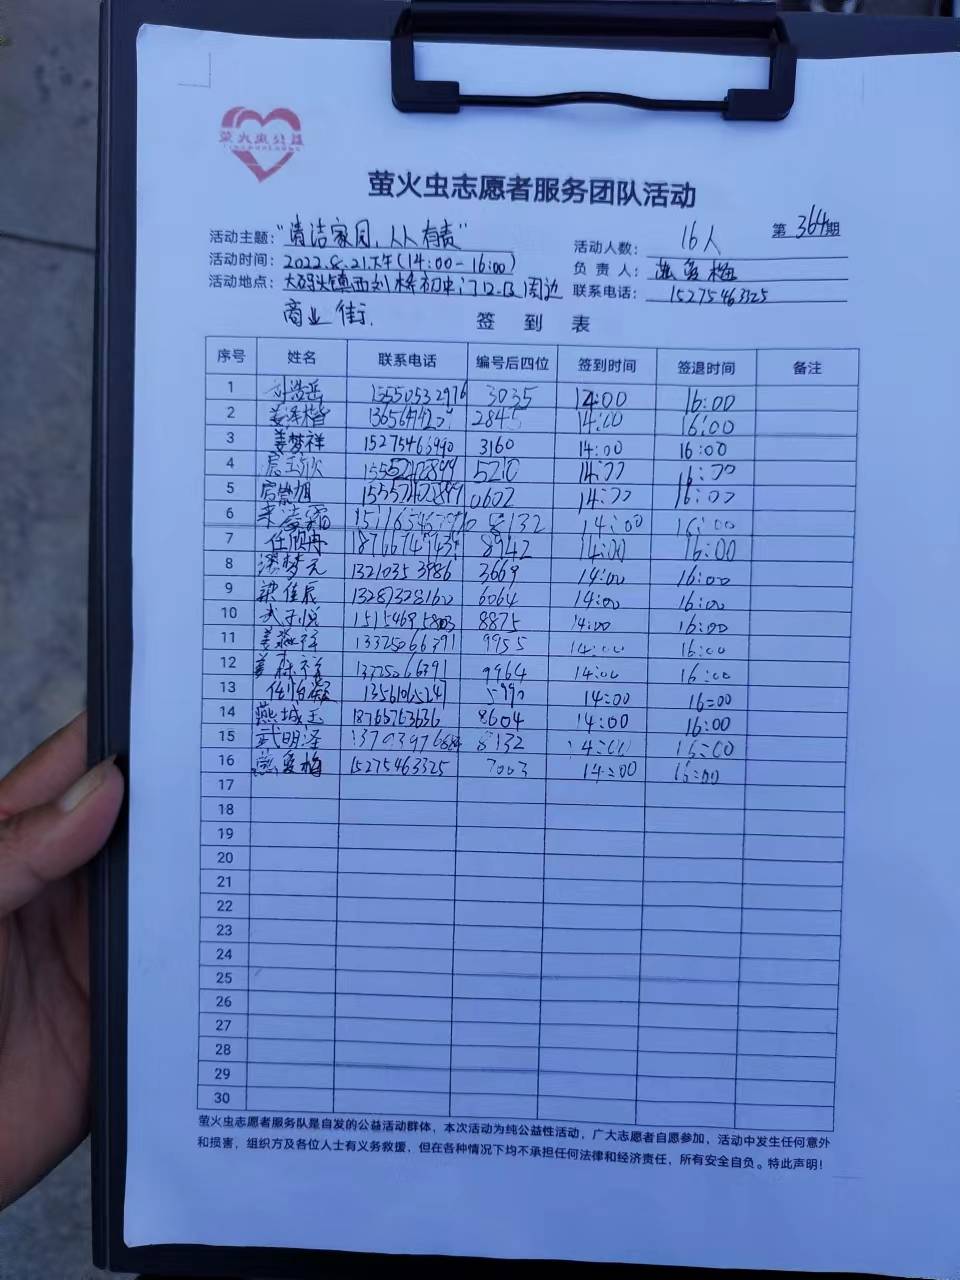 萤火虫公益
萤火虫志愿者服务团队活动
第 364期
活动主题："清洁家园,人人有责" 活动人数：16人
活动时间：2022.8.21下午(14:00-16:00) 负责人：燕爱梅
活动地点：大码头镇西刘桥初中门口及周边 联系电话：15275463325
商业街.
签到表
序号 姓名 联系电话 编号后四位 签到时间 签退时间 备注
1 刘浩岳 13550532976 3035 14:00 16:00
2 14:00 16:00
3 姜梦祥 15275463990 3160 14:00 16:00
4 5210 14:00 16:00
5 0602 14:00 16:00
6 8132 14:00 16:00
7 8942 14:00 16:00
8 梁梦元 13210353986 3669 14:00 16:00
9 梁佳辰 13287328160 6064 14:00 16:00
10 武子悦 15154695803 8875 14:00 16:00
11 13325066391 9955 14:00 16:00
12 姜森祥 13325066391 9964 14:00 16:00
13 14:00 16:00
14 燕城玉 18765763636 8604 14:00 16:00
15 武明泽 8132 14:00 16:00
16 燕爱梅 15275463325 7003 14:00 16:00
17
18
19
20
21
22
23
24
25
26
27
28
29
30
萤火虫志愿者服务队是自发的公益活动群体，本次活动为纯公益性活动，广大志愿者自愿参加，活动中发生任何意外
和损害，组织方及各位人士有义务救援，但在各种情况下均不承担任何法律和经济责任，所有安全自负。特此声明！